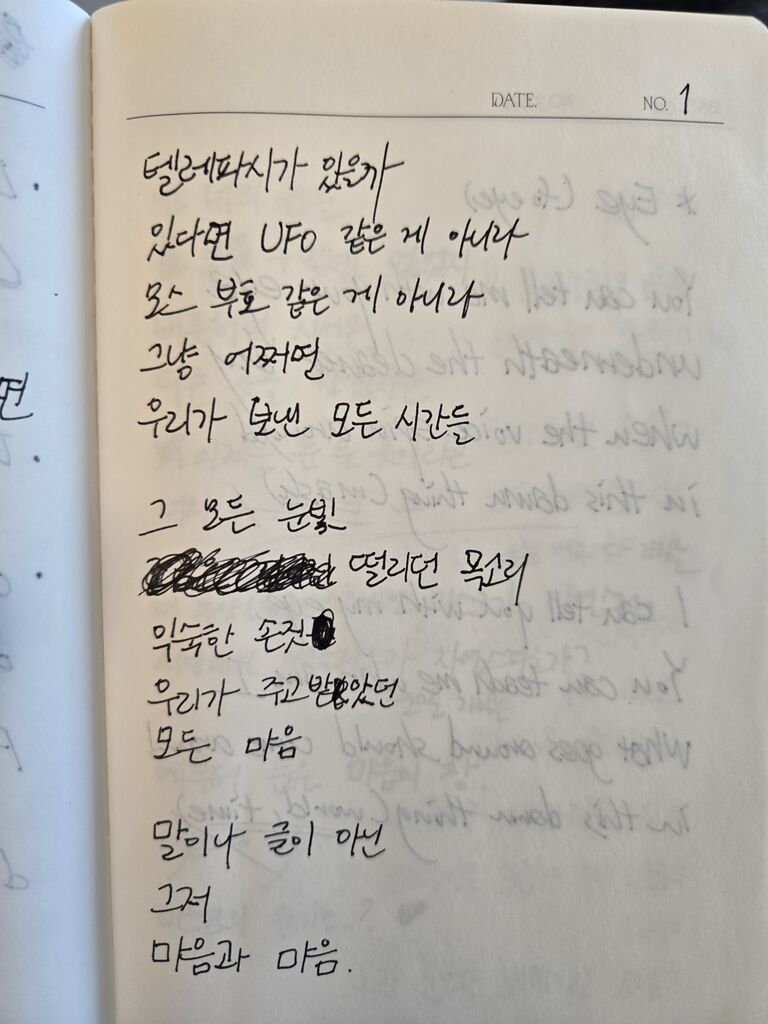 DATE.
NO. 1
텔레파시가 있을까
있다면 UFO 같은 게 아니라
모스 부호 같은 게 아니라
그냥 어쩌면
우리가 보낸 모든 시간들
그 모든 눈빛
떨리던 목소리
익숙한 손짓
우리가 주고받았던
모든 마음
말이나 글이 아닌
그저
마음과 마음.
면